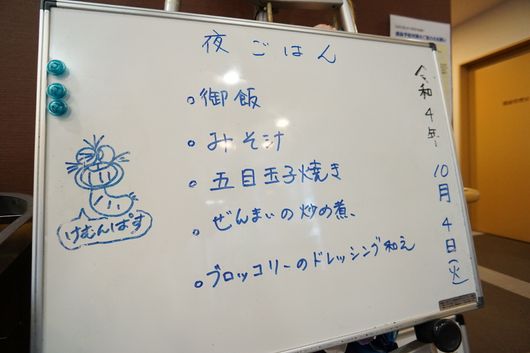 夜ごはん
令和4年10月4日(火)
。御飯
。みそ汁
。五目玉子焼き
。ぜんまいの炒め煮、
。ブロッコリーのドレッシング和え
けむんぱす